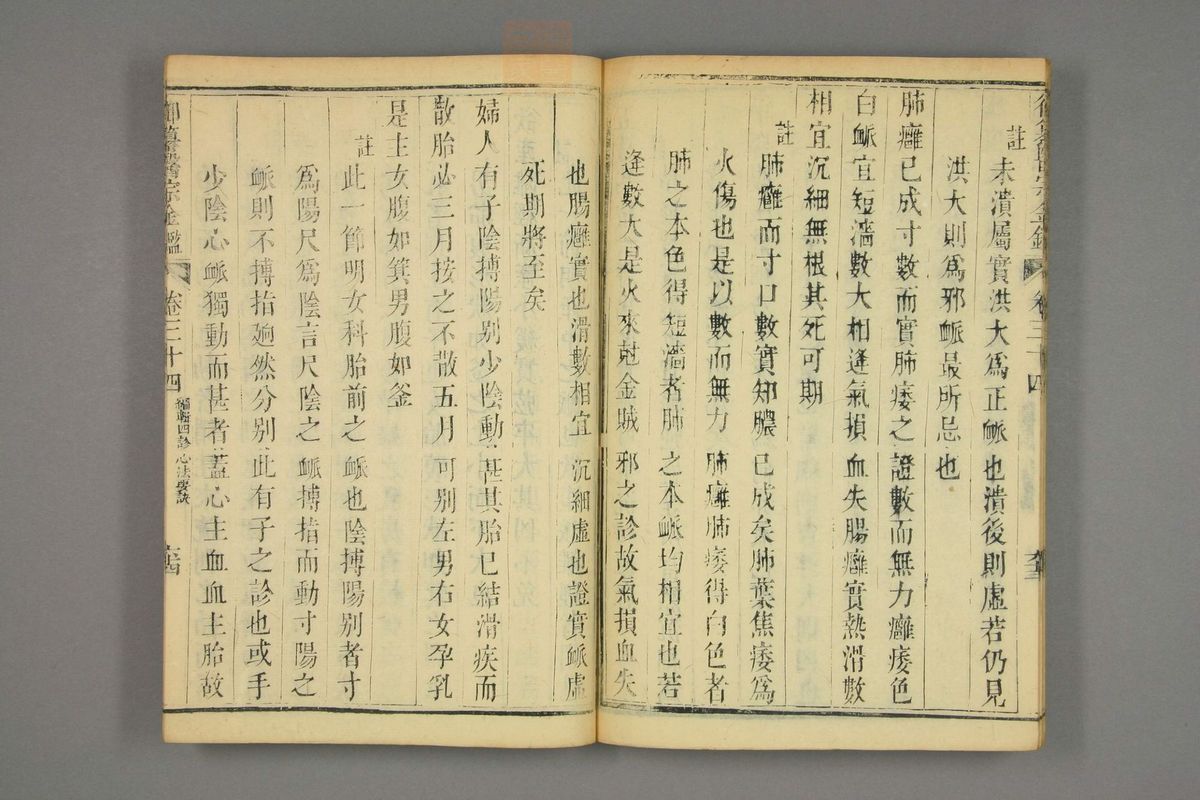 註
未潰屬實洪大爲正𧖴也潰後則虛若仍見
洪大則爲邪𧖴最所忌也
肺癰已成寸數而實肺痿之證數而無力癰痿色
白𧖴宜短濇數大相逢氣損血失腸癰實熱滑數
相宜沉細無根其死可期
註
肺癰而寸口數實知膿已成矣肺葉焦痿爲
火傷也是以數而無力肺癰肺痿得白色者
肺之本色得短濇者肺之本𧖴均相宜也若
逢數大是火來尅金賊邪之診故氣損血失
也腸癰實也滑數相宜沉細虛也證實𧖴虛
死期將至矣
婦人有子陰搏陽别少陰動甚其胎已結滑疾而
散胎必三月按之不散五月可别左男右女孕乳
是主女腹如箕男腹如釜
註
此一節明女科胎前之𧖴也陰搏陽别者寸
爲陽尺爲陰言尺陰之𧖴搏指而動寸陽之
𧖴則不搏指迥然分别此有子之診也或手
少陰心𧖴獨動而甚者蓋心主血血主胎故
御纂醫宗金鑑
卷三十四
編輯四診心法要訣